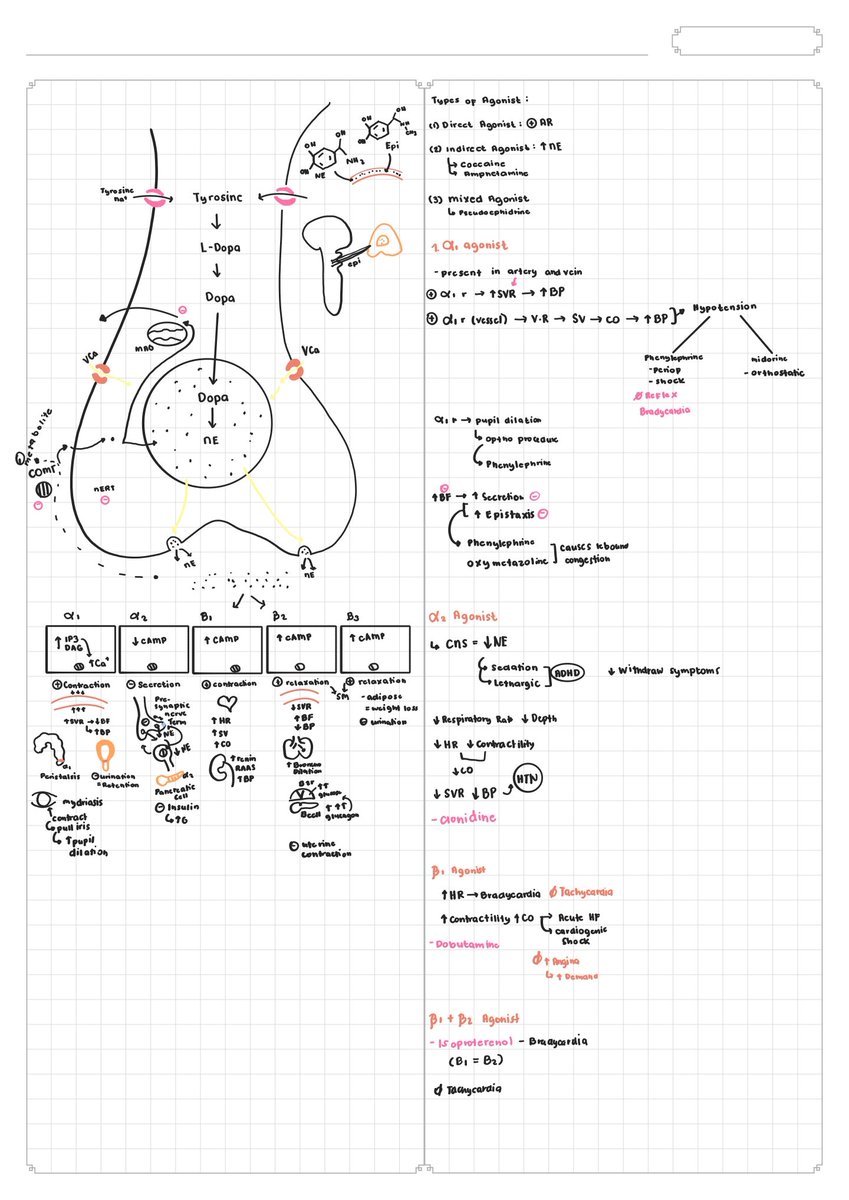 OH
OH
OH
NH2
NE
OH
OH
OH
H
N
CH3
Epi
Tyrosine
Na+
Tyrosine
L-Dopa
Dopa
epi
MAO
VCa
VCa
Dopa
NE
metabolite
COMT
NERT
NE
NE
α1
α2
B1
β2
B3
↑ IP3
DAG
↑Ca+
↓ CAMP
↑ CAMP
↑ CAMP
↑ CAMP
⊕ Contraction
↑SVR → ↓BF
↳ ↑BP
α1
Peristalsis
⊖ urination
= Retention
mydriasis
contract
↳ pull iris
↳ ↑ pupil
dilation
⊖ Secretion
Pre-
synaptic
nerve
Term
↓NE
↓NE
α2
Pancreatic
cell
⊖ Insulin
↳ ↑G
contraction
↑ HR
↑ SV
↑ CO
↑ renin
RAAS
↑ BP
relaxation
SM
↓SVR
↑ BF
↓ BP
↑ Broncho
Dilation
B2r
↑↑
glucose
Bcell
↑↑↑
glucagon
⊖ uterine
contraction
⊕ relaxation
- adipose
= weight loss
⊖ urination
Types of Agonist :
(1) Direct Agonist : ⊕ AR
(2) Indirect Agonist : ↑ NE
↳ Coccaine
↳ Amphetamine
(3) mixed Agonist
↳ Pseudoephidrine
1 α1 agonist
- present in artery and vein
⊕ α1 r → ↑ SVR → ↑ BP
⊕ α1 r (vessel) → V·R → SV → CO → ↑ BP
Hypotension
Phenylephrine
- Periop
- shock
Ø Reflex
Bradycardia
midorine
- orthostatic
α1 r → pupil dilation
↳ optho procedure
Phenylephrine
⊖
↑ BF → ↑ Secretion ⊖
↑ Epistaxis ⊖
Phenylephrine
oxymetazoline
causes rebound
congestion
α2 Agonist
↳ CNS = ↓NE
Sedation
Lethargic
ADHD
↓ Withdraw symptoms
↓ Respiratory Rate ↓ Depth
↓ HR ↓ Contractility
↓ CO
↓ SVR ↓ BP
HTN
- clonidine
β1 Agonist
↑ HR → Bradycardia Ø Tachycardia
↑ Contractility ↑ CO
Acute HF
cardiogenic
shock
- Dobutamine
Ø ↑ Angina
↳ ↑ Demand
β1 + β2 Agonist
- Isoproterenol - Bradycardia
(B1 = B2)
Ø Tachycardia